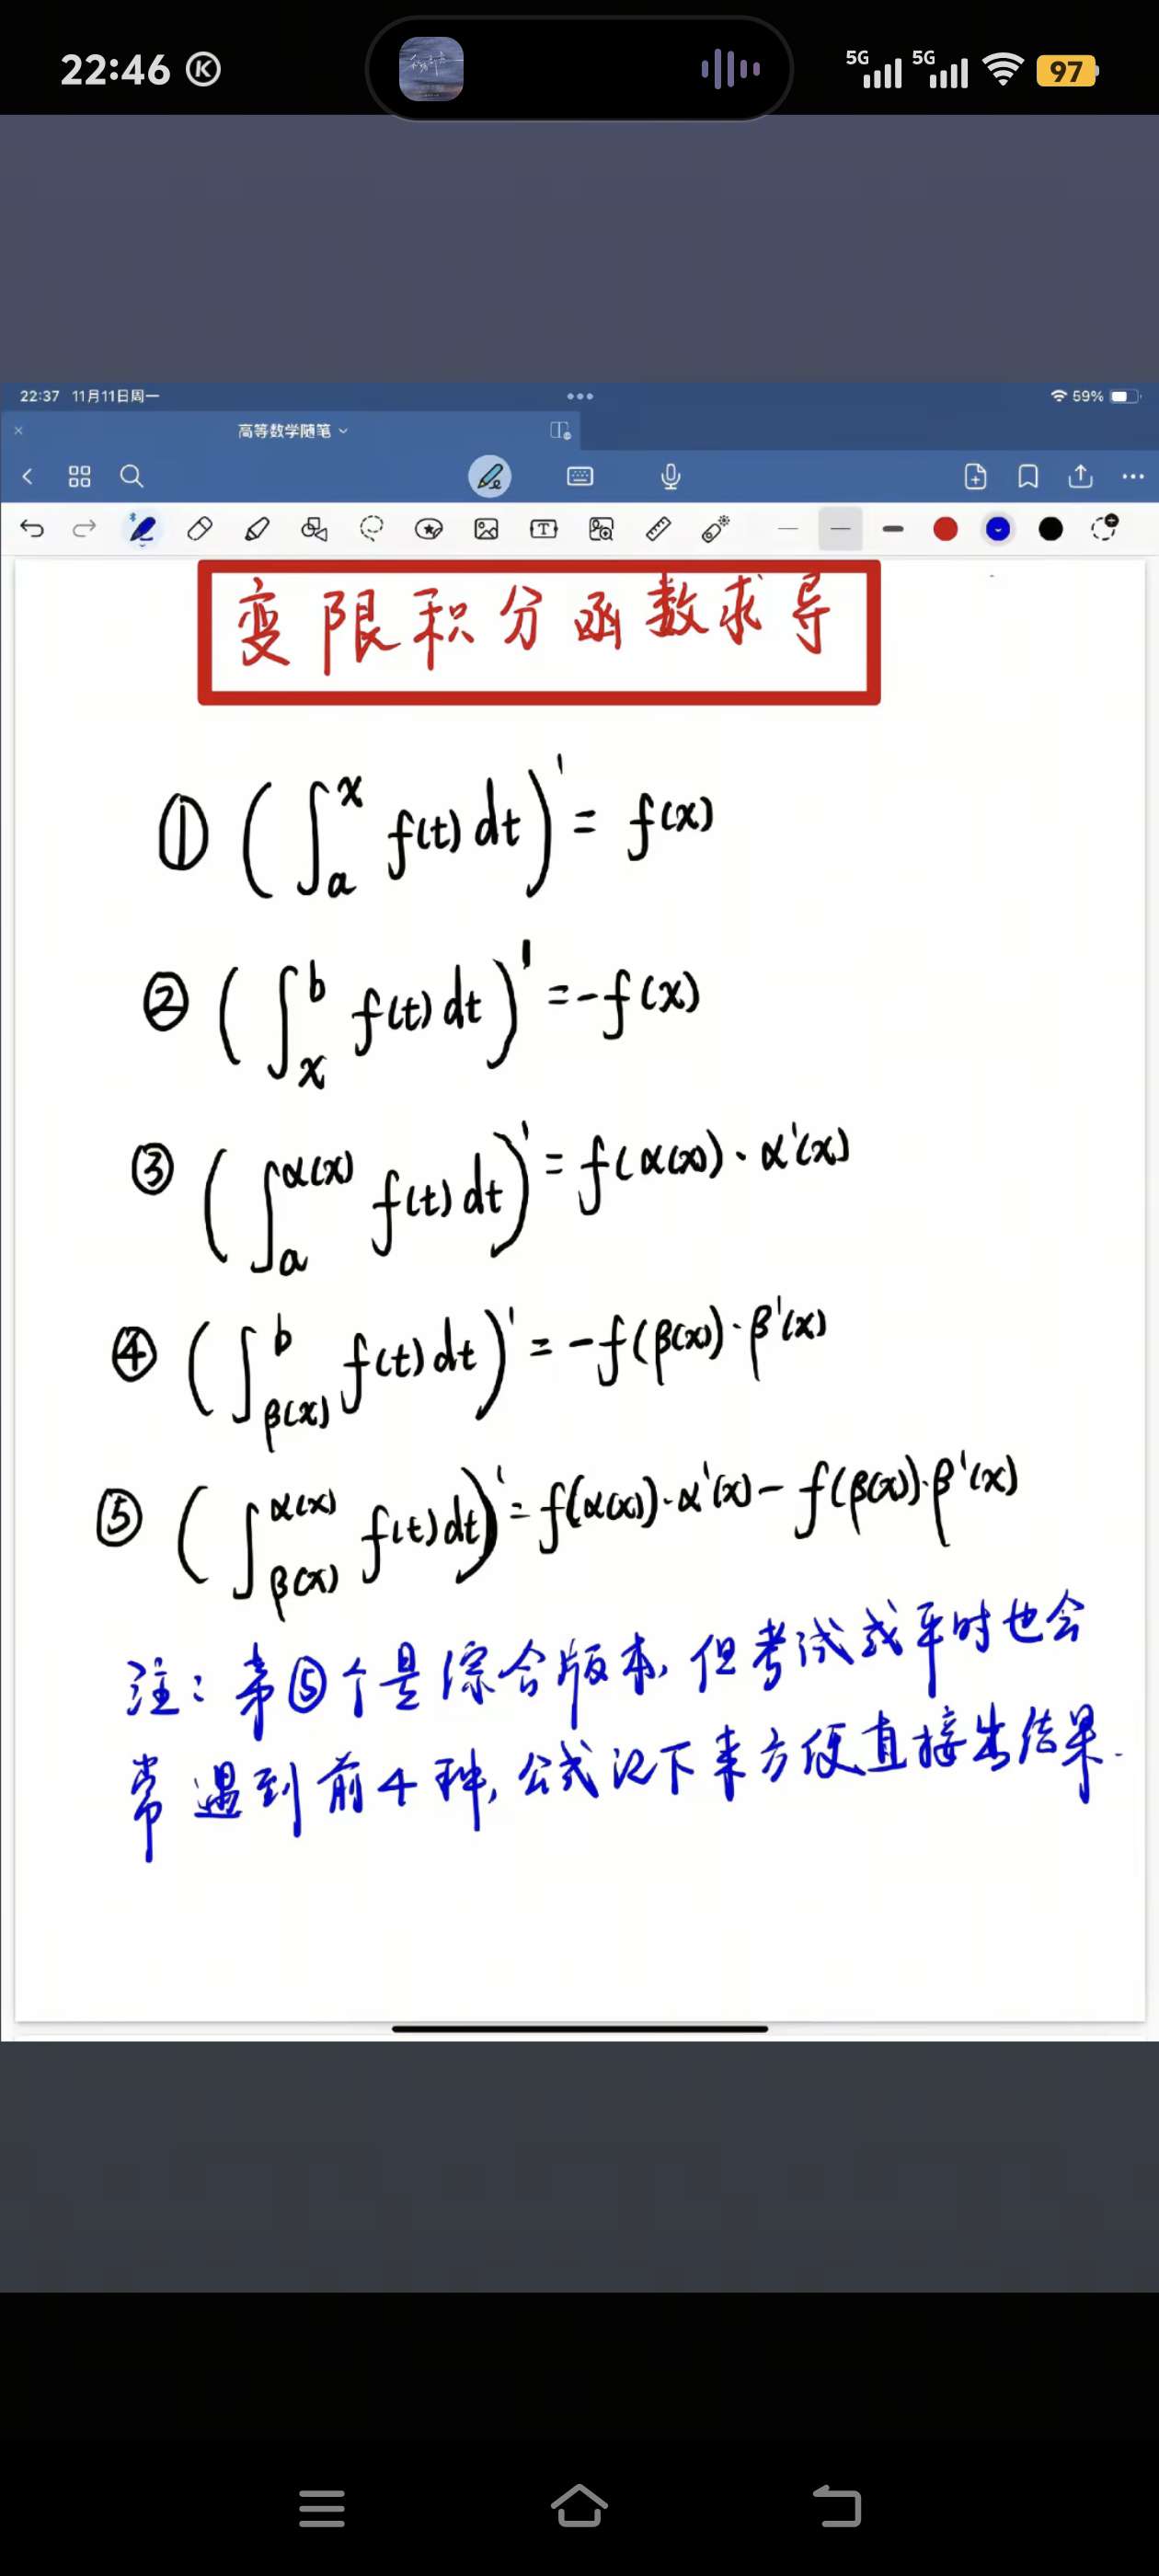 22:46 K 5G 5G 97
22:37 11月11日周一 59%
高等数学随笔
变限积分函数求导
① (∫ₐˣ f(t) dt)' = f(x)
② (∫ₓᵇ f(t) dt)' = -f(x)
③ (∫ₐ^α(x) f(t) dt)' = f(α(x)) · α'(x)
④ (∫_β(x)^b f(t) dt)' = -f(β(x)) · β'(x)
⑤ (∫_β(x)^α(x) f(t) dt)' = f(α(x)) · α'(x) - f(β(x)) · β'(x)
注: 第⑤个是综合版本, 但考试或平时也会
常遇到前4种, 公式记下来方便直接出结果.